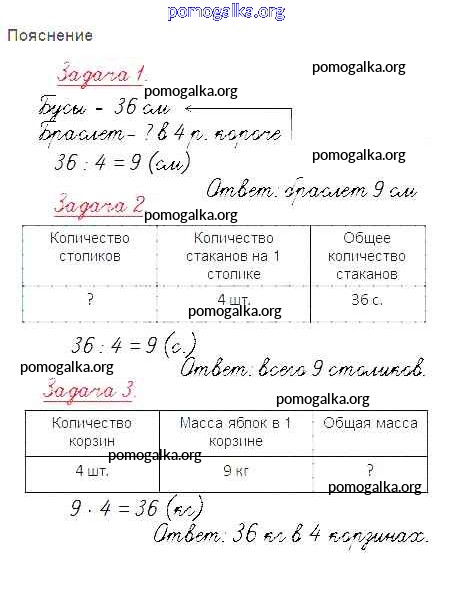 pomogalka.org
Пояснение
Задача 1.
pomogalka.org
pomogalka.org
Бусы - 36 см
Браслет - ? в 4 р. короче
36 : 4 = 9 (см)
pomogalka.org
Ответ: браслет 9 см
Задача 2
pomogalka.org
Количество столиков
Количество стаканов на 1 столике
Общее количество стаканов
?
4 шт.
36 с.
pomogalka.org
36 : 4 = 9 (с.)
pomogalka.org
Ответ: всего 9 столиков.
Задача 3.
pomogalka.org
Количество корзин
Масса яблок в 1 корзине
Общая масса
pomogalka.org
4 шт.
9 кг
?
pomogalka.org
9 · 4 = 36 (кг)
Ответ: 36 кг в 4 корзинах.